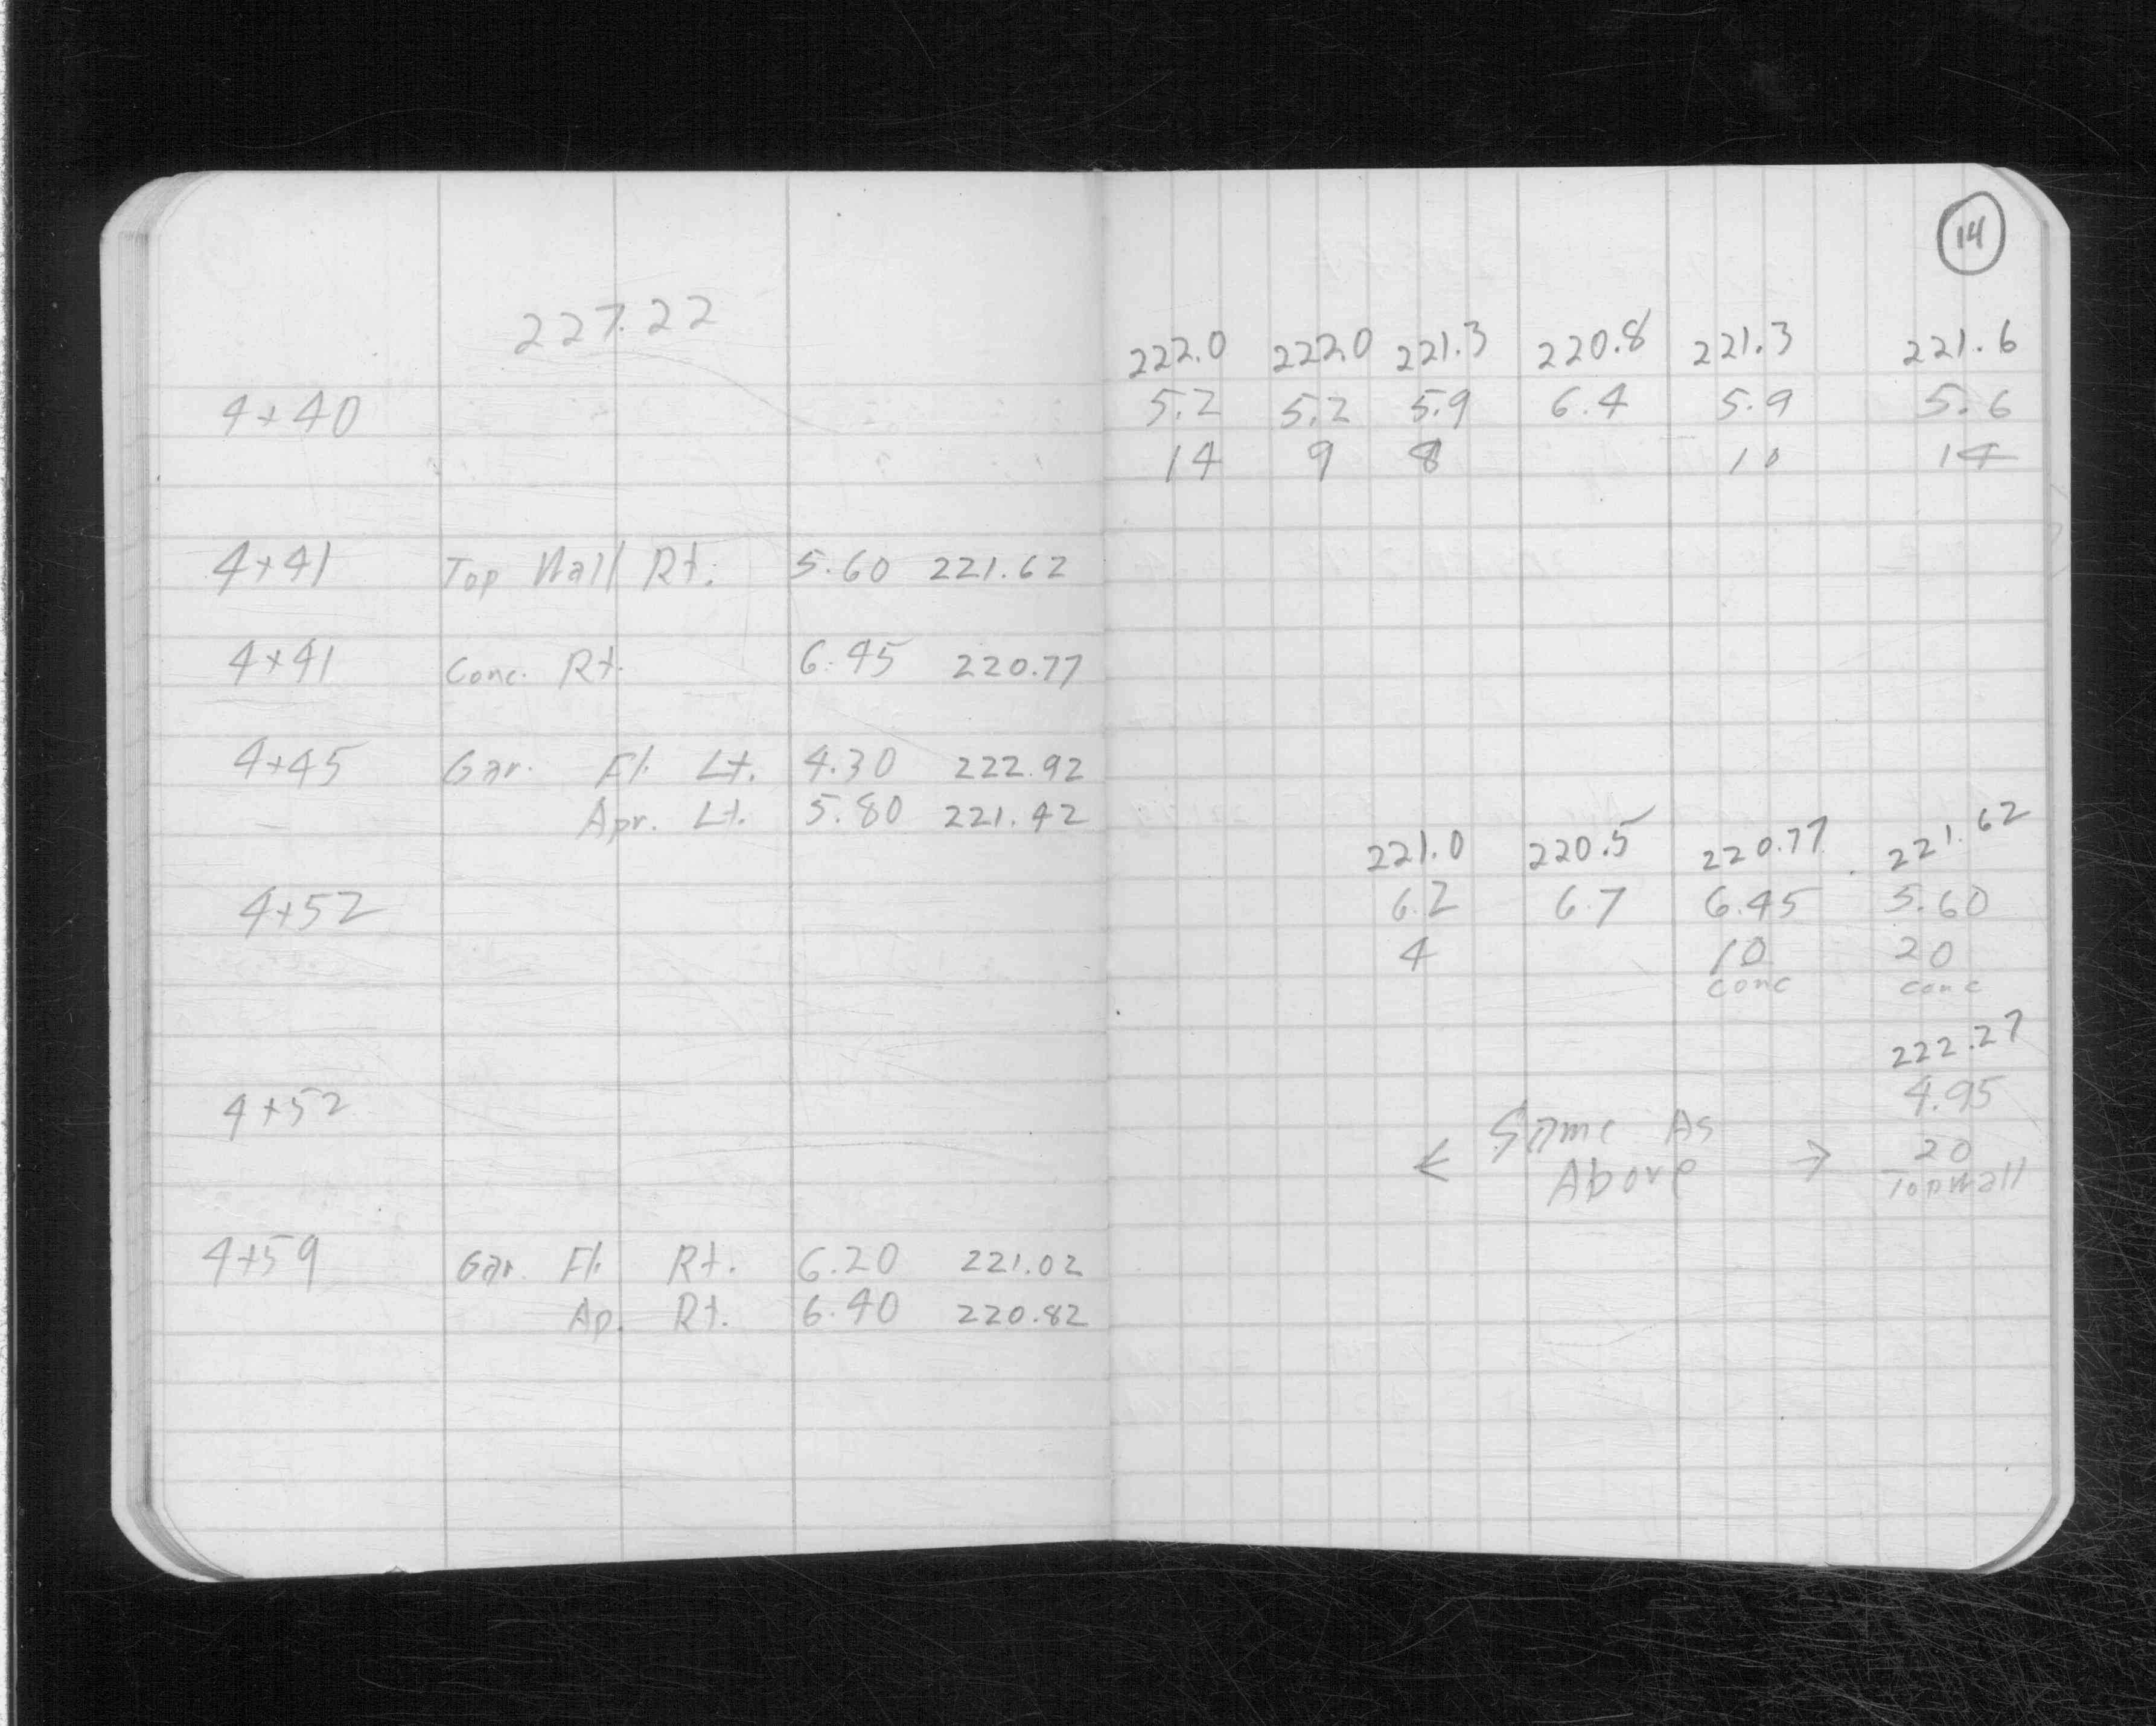 14
227.22
222.0 222.0 221.3 220.8 221.3 221.6
4+40 5.2 5.2 5.9 6.4 5.9 5.6
14 9 8 10 14
4+41 Top Wall Rt. 5.60 221.62
4+41 Conc. Rt. 6.45 220.77
4+45 Gar. Fl. Lt. 4.30 222.92
Apr. Lt. 5.80 221.42
221.0 220.5 220.77 221.62
4+52 6.2 6.7 6.45 5.60
4 10 20
conc conc
222.27
4+52 4.95
← Same As
Above → 20
Top Wall
4+59 Gar. Fl. Rt. 6.20 221.02
Ap. Rt. 6.40 220.82